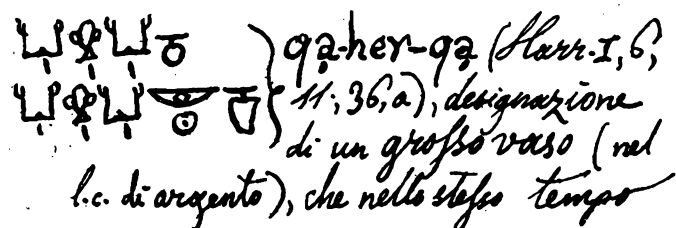 𓂓𓏤𓁷𓏤𓂓𓏤 qạ-her-qạ (Harr. I, 6,
𓂓𓏤𓁷𓏤𓂓𓏤 11; 36, a), designazione
di un grosso vaso (nel
l.c. di argento), che nello stesso tempo